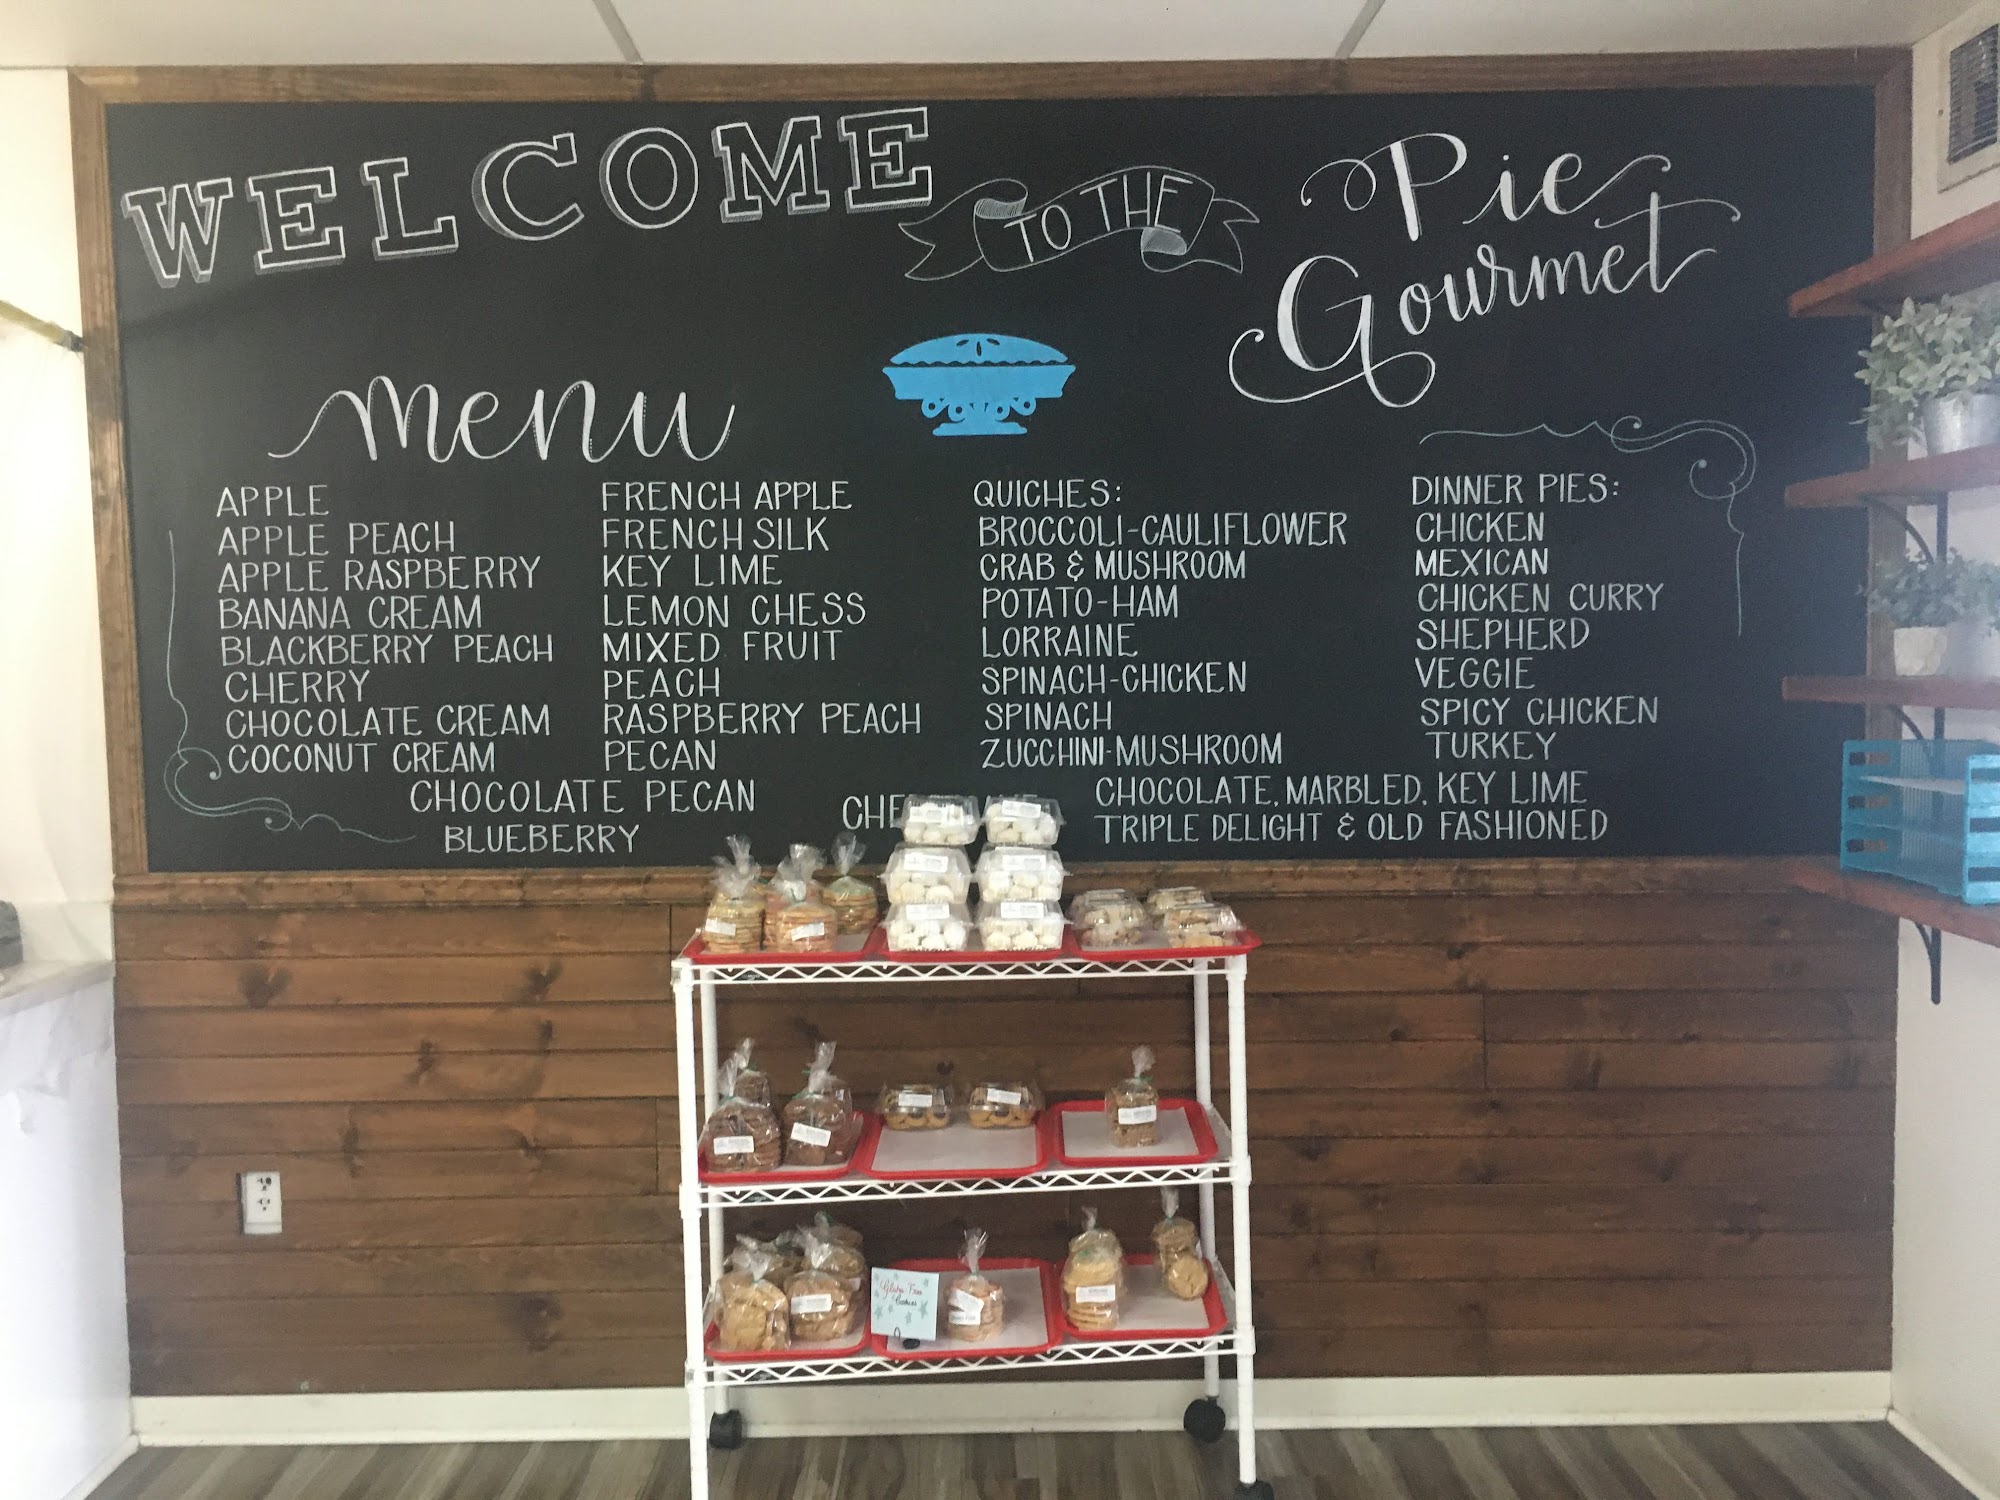 WELCOME TO THE Pie
Gourmet
menu
APPLE
APPLE PEACH
APPLE RASPBERRY
BANANA CREAM
BLACKBERRY PEACH
CHERRY
CHOCOLATE CREAM
COCONUT CREAM
FRENCH APPLE
FRENCH SILK
KEY LIME
LEMON CHESS
MIXED FRUIT
PEACH
RASPBERRY PEACH
PECAN
CHOCOLATE PECAN
BLUEBERRY
QUICHES:
BROCCOLI-CAULIFLOWER
CRAB & MUSHROOM
POTATO-HAM
LORRAINE
SPINACH-CHICKEN
SPINACH
ZUCCHINI-MUSHROOM
DINNER PIES:
CHICKEN
MEXICAN
CHICKEN CURRY
SHEPHERD
VEGGIE
SPICY CHICKEN
TURKEY
CHOCOLATE, MARBLED, KEY LIME
TRIPLE DELIGHT & OLD FASHIONED
Gluten Free
Cookies